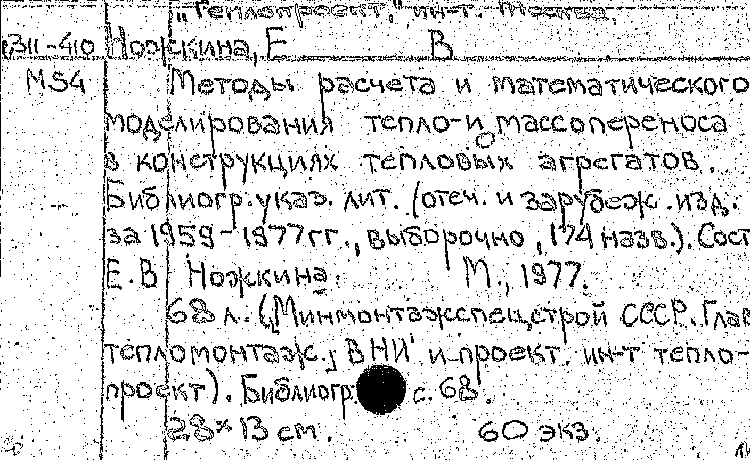 „Теплопроект,” ин-т. Москва.
В11-410 Ножкина, Е В
М54 Методы расчета и математического
моделирования тепло-и массопереноса
в конструкциях тепловых агрегатов.
Библиогр. указ. лит. (отеч. и зарубеж. изд.
за 1959-1977гг., выборочно, 174 назв.). Сост
Е.В Ножкина. М., 1977.
68 л. (Минмонтажспецстрой СССР. Глав
тепломонтаж., ВНИ и проект. ин-т тепло-
проект). Библиогр. с. 68.
28×13 см. 60 экз.